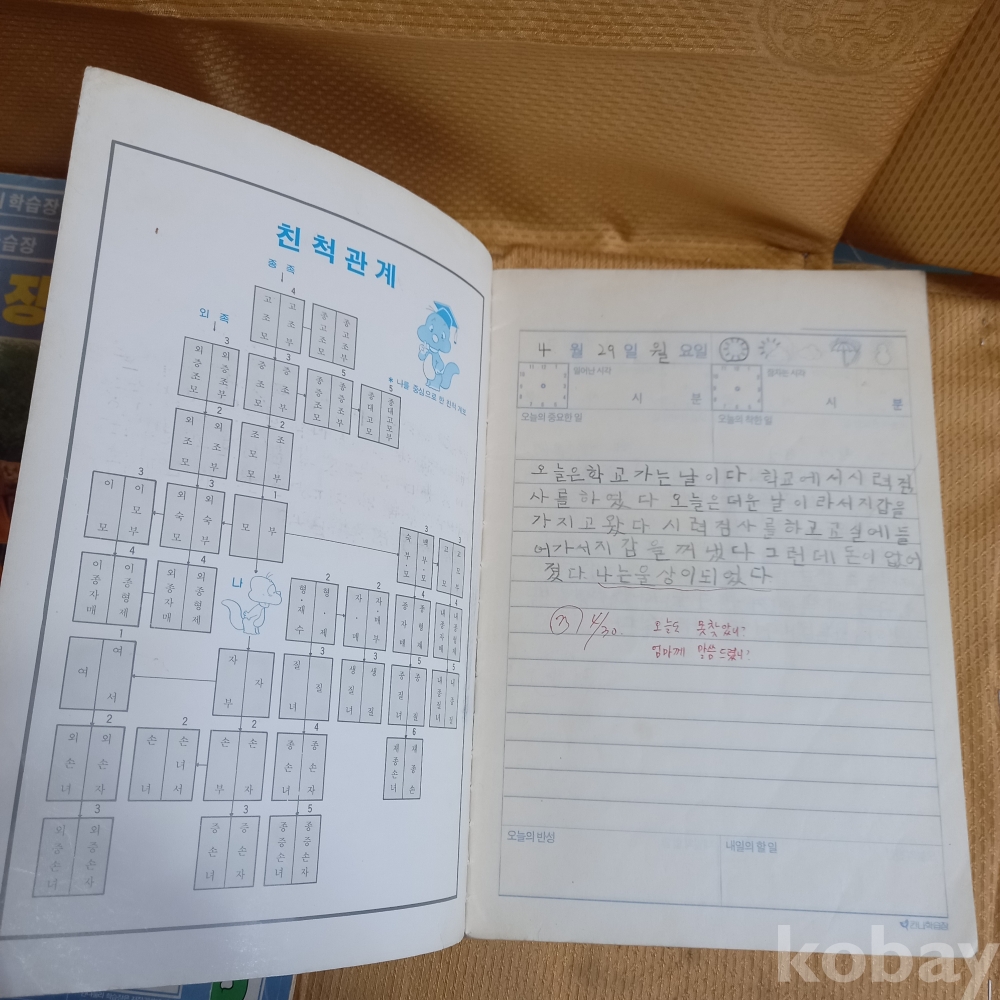 학습장
습장
장
친척관계
종 족
외 족
* 나를 중심으로 한 친척 계보
4
고조모 고조부 종고조모 종고조부
3 3 5 5
외증조모 외증조부 증조모 증조부 종증조모 종증조부 종대고모 종대고모부
2 2
외조모 외조부 조모 조부
3 3 1 3 3
이모 이모부 외숙모 외숙부 모 부 숙부·모 백부·모 고모 고모부
4 4 나 2 2 4 4
이종자매 이종형제 외종자매 외종형제 형·제수 형·제 자·매 자·매부 종자매 종형제 내종자매 내종형제
1 3 3 5 5
여 여서 자부 자 질녀 질 생질녀 생질 종질녀 종질 내종질녀 내종질
2 2 2 4 6
외손녀 외손자 손녀 손녀서 손부 손자 종손녀 종손자 재종손녀 재종손
3 3 5
외증손녀 외증손자 증손녀 증손자 종증손녀 종증손자
4 월 29 일 월 요일
일어난 시각 잠자는 시각
시 분 시 분
오늘의 중요한 일 오늘의 착한 일
오늘은학교가는날이다. 학교에서시력검
사를하였다 오늘은더운날이라서지갑을
가지고왔다 시력검사를하고교실에들
어가서지갑을꺼냈다 그런데돈이없어
졌다. 나는울상이되었다
4/30 오늘도 못찾았니?
엄마께 말씀드렸니?
오늘의 반성 내일의 할 일
kobay